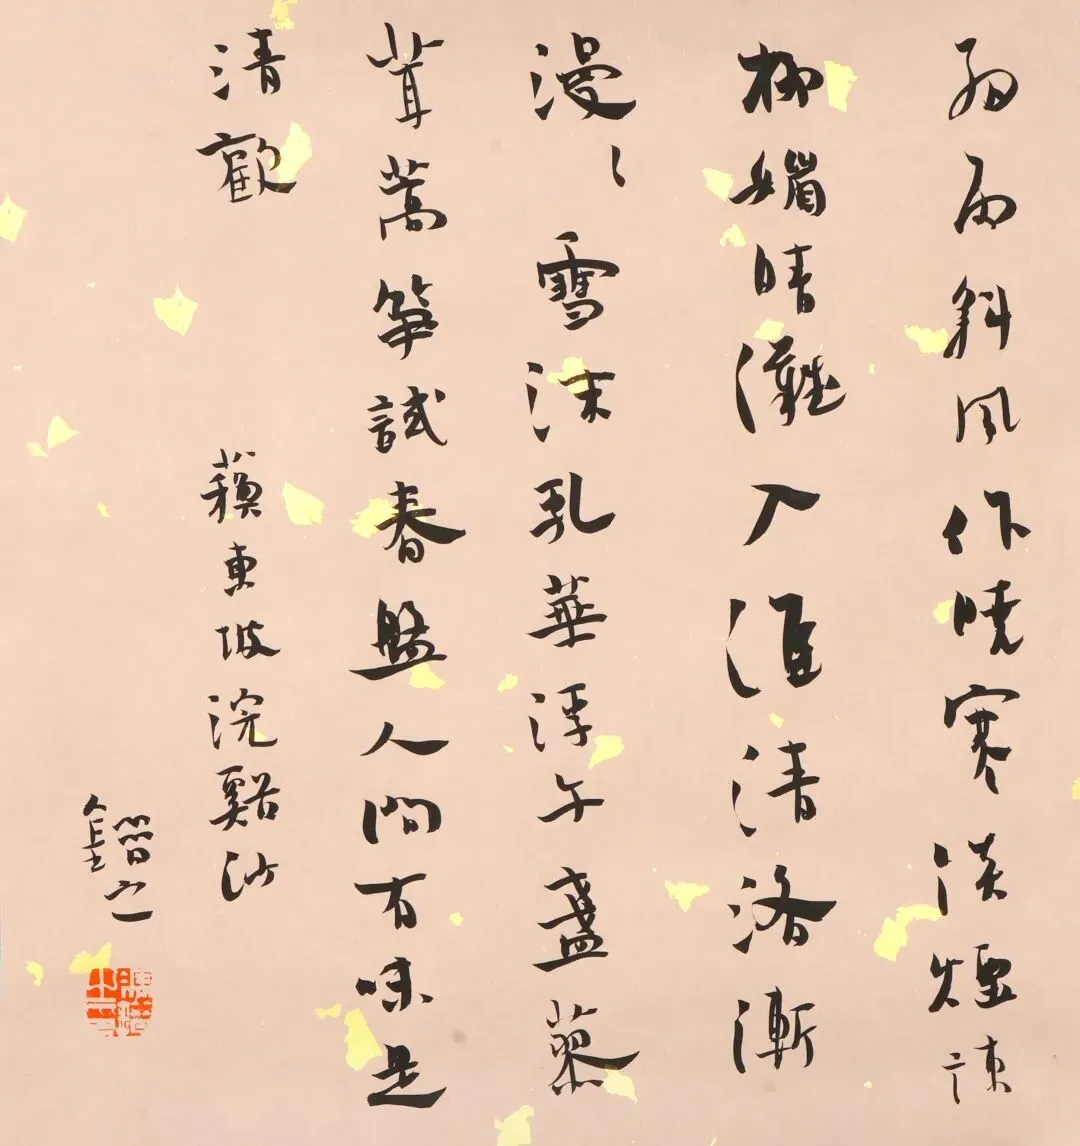 細雨斜風作曉寒淡煙疎
柳媚晴灘入淮清洛漸
漫〻雪沫乳華浮午盞蓼
茸蒿笋試春盤人間有味是
清歡
蘓東坡浣谿沙
鍇之